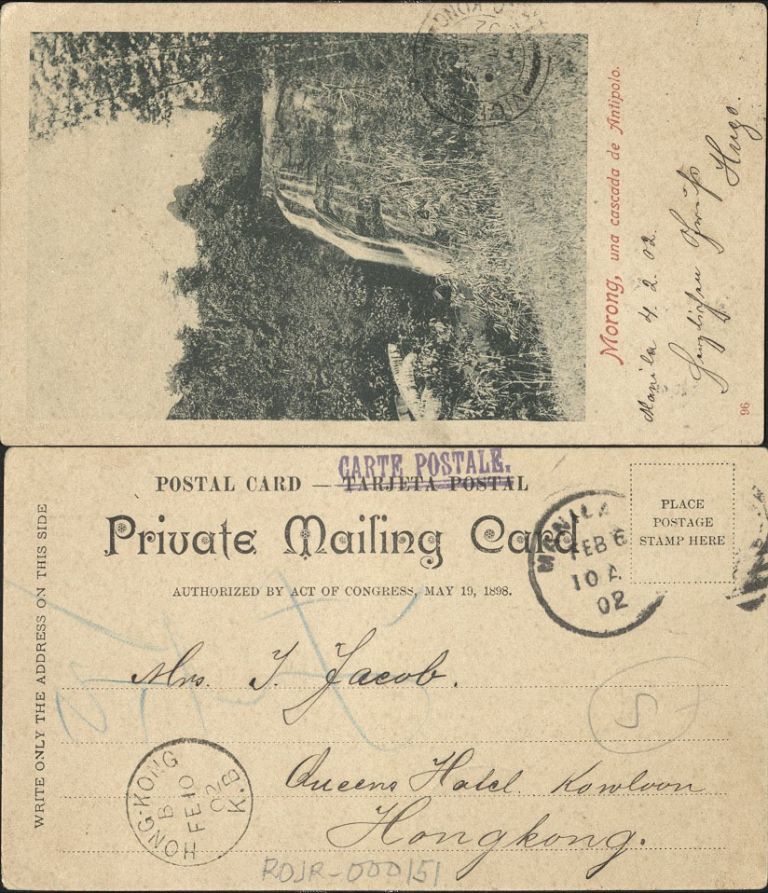 Morong, una cascada de Antipolo.
Manila 4. 2. 02.
Herzlichen Gruß
Hugo.
96
CARTE POSTALE.
POSTAL CARD — TARJETA POSTAL
Private Mailing Card
AUTHORIZED BY ACT OF CONGRESS, MAY 19, 1898.
PLACE
POSTAGE
STAMP HERE
MANILA
FEB 6
10 A
02
WRITE ONLY THE ADDRESS ON THIS SIDE
Mrs. J. Jacob.
5
Queens Hotel. Kowloon
Hongkong.
HONG-KONG
B
FE 10
02
K.B
ROJR-000151